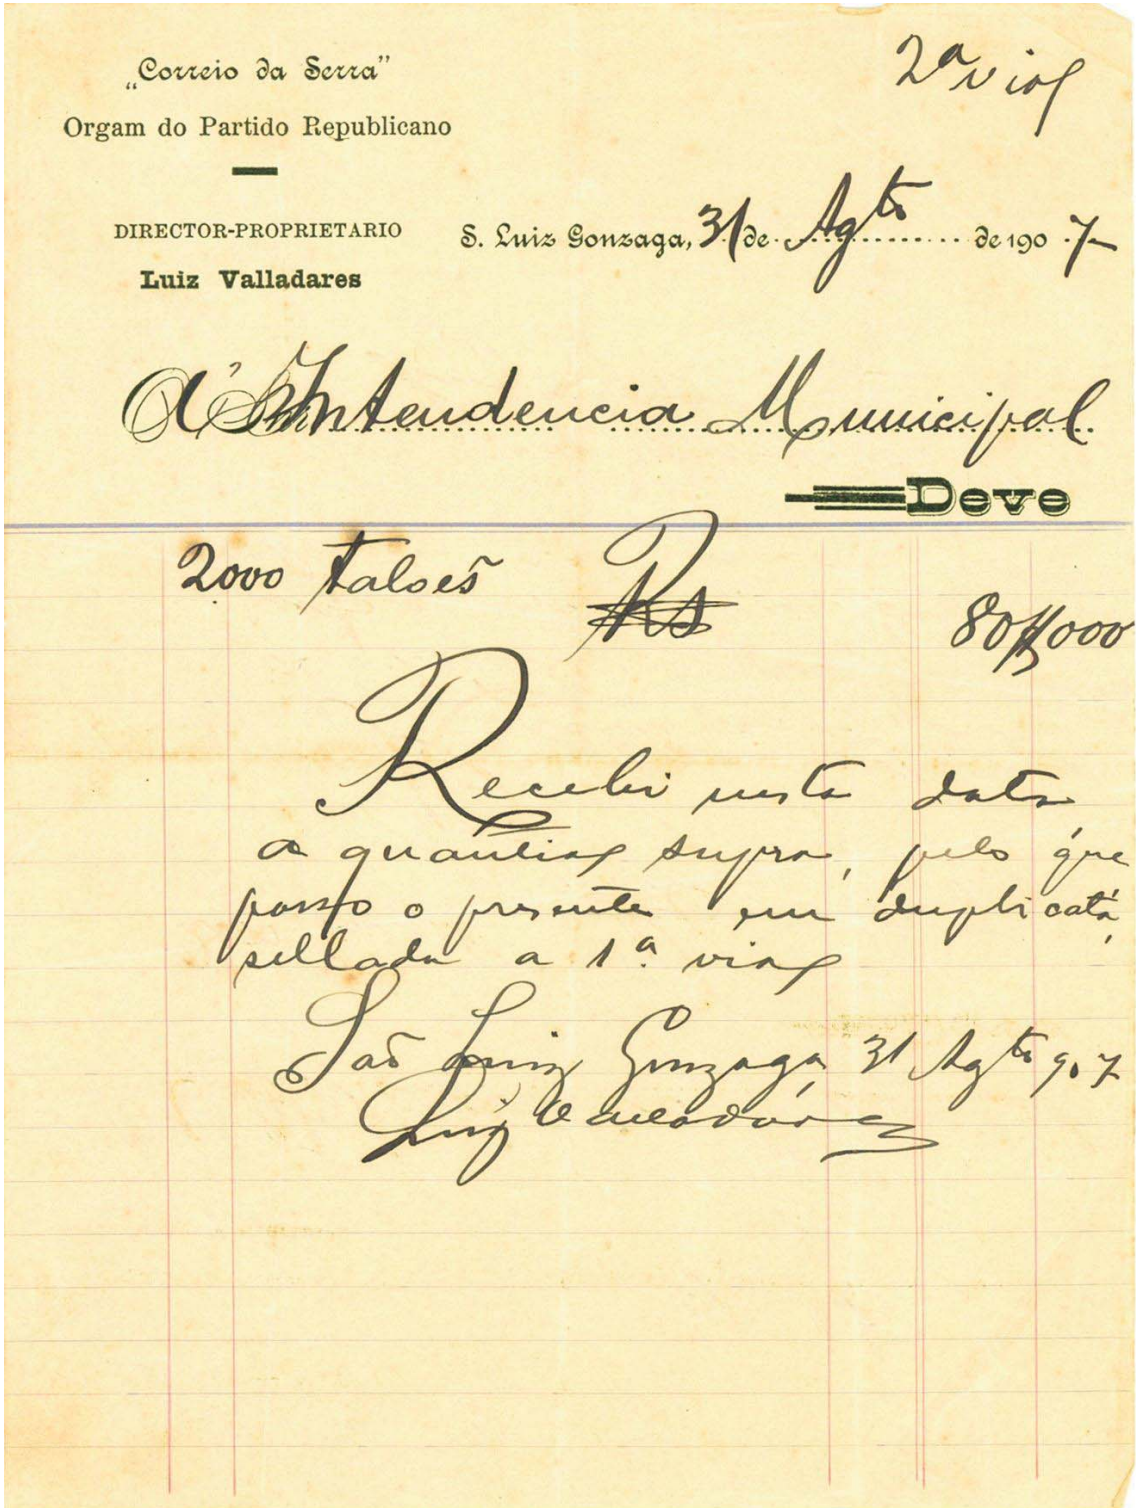 2ª via
„Correio da Serra”
Orgam do Partido Republicano
DIRECTOR-PROPRIETARIO
Luiz Valladares
S. Luiz Gonzaga, 31 de Agto de 1907
A' Intendencia Municipal
Deve
2000 talões Rs 80$000
Recebi nesta data
a quantia supra, pelo que
passo o presente em duplicata,
sellada a 1ª via
São Luiz Gonzaga, 31 Agto 907
Luiz Valladares